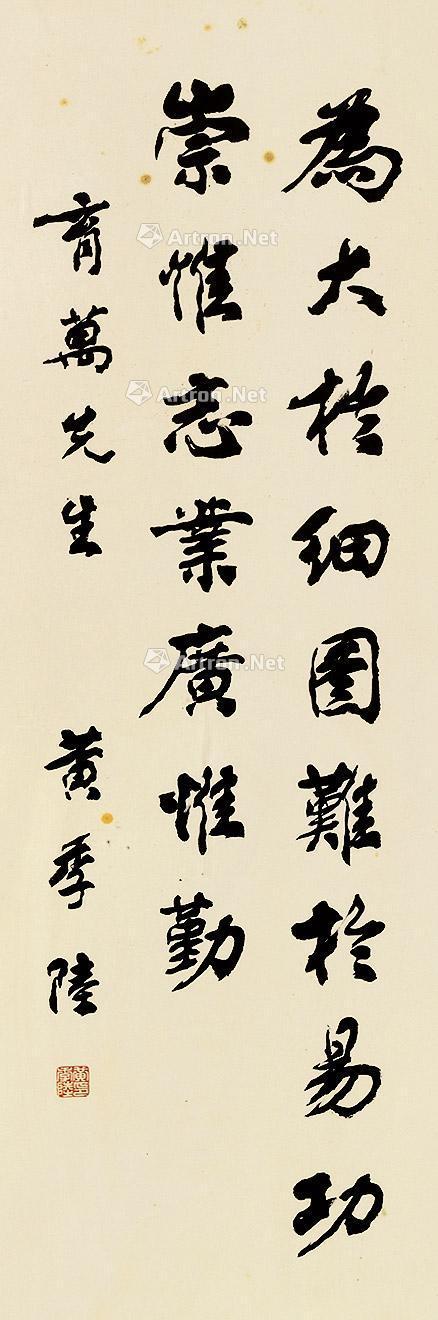 為大於細圖難於易功
崇惟志業廣惟勤
育萬先生
黃季陸
Artron.Net
Artron.Net
Artron.Net